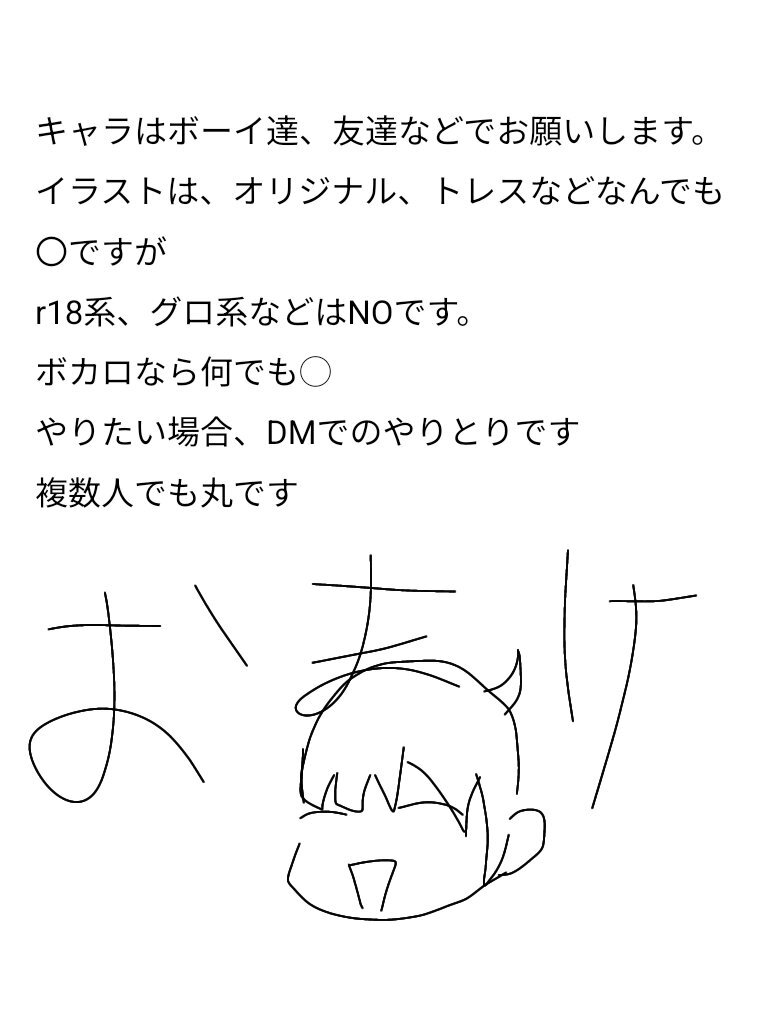 キャラはボーイ達、友達などでお願いします。
イラストは、オリジナル、トレスなどなんでも
〇ですが
r18系、グロ系などはNOです。
ボカロなら何でも◯
やりたい場合、DMでのやりとりです
複数人でも丸です
おまけ